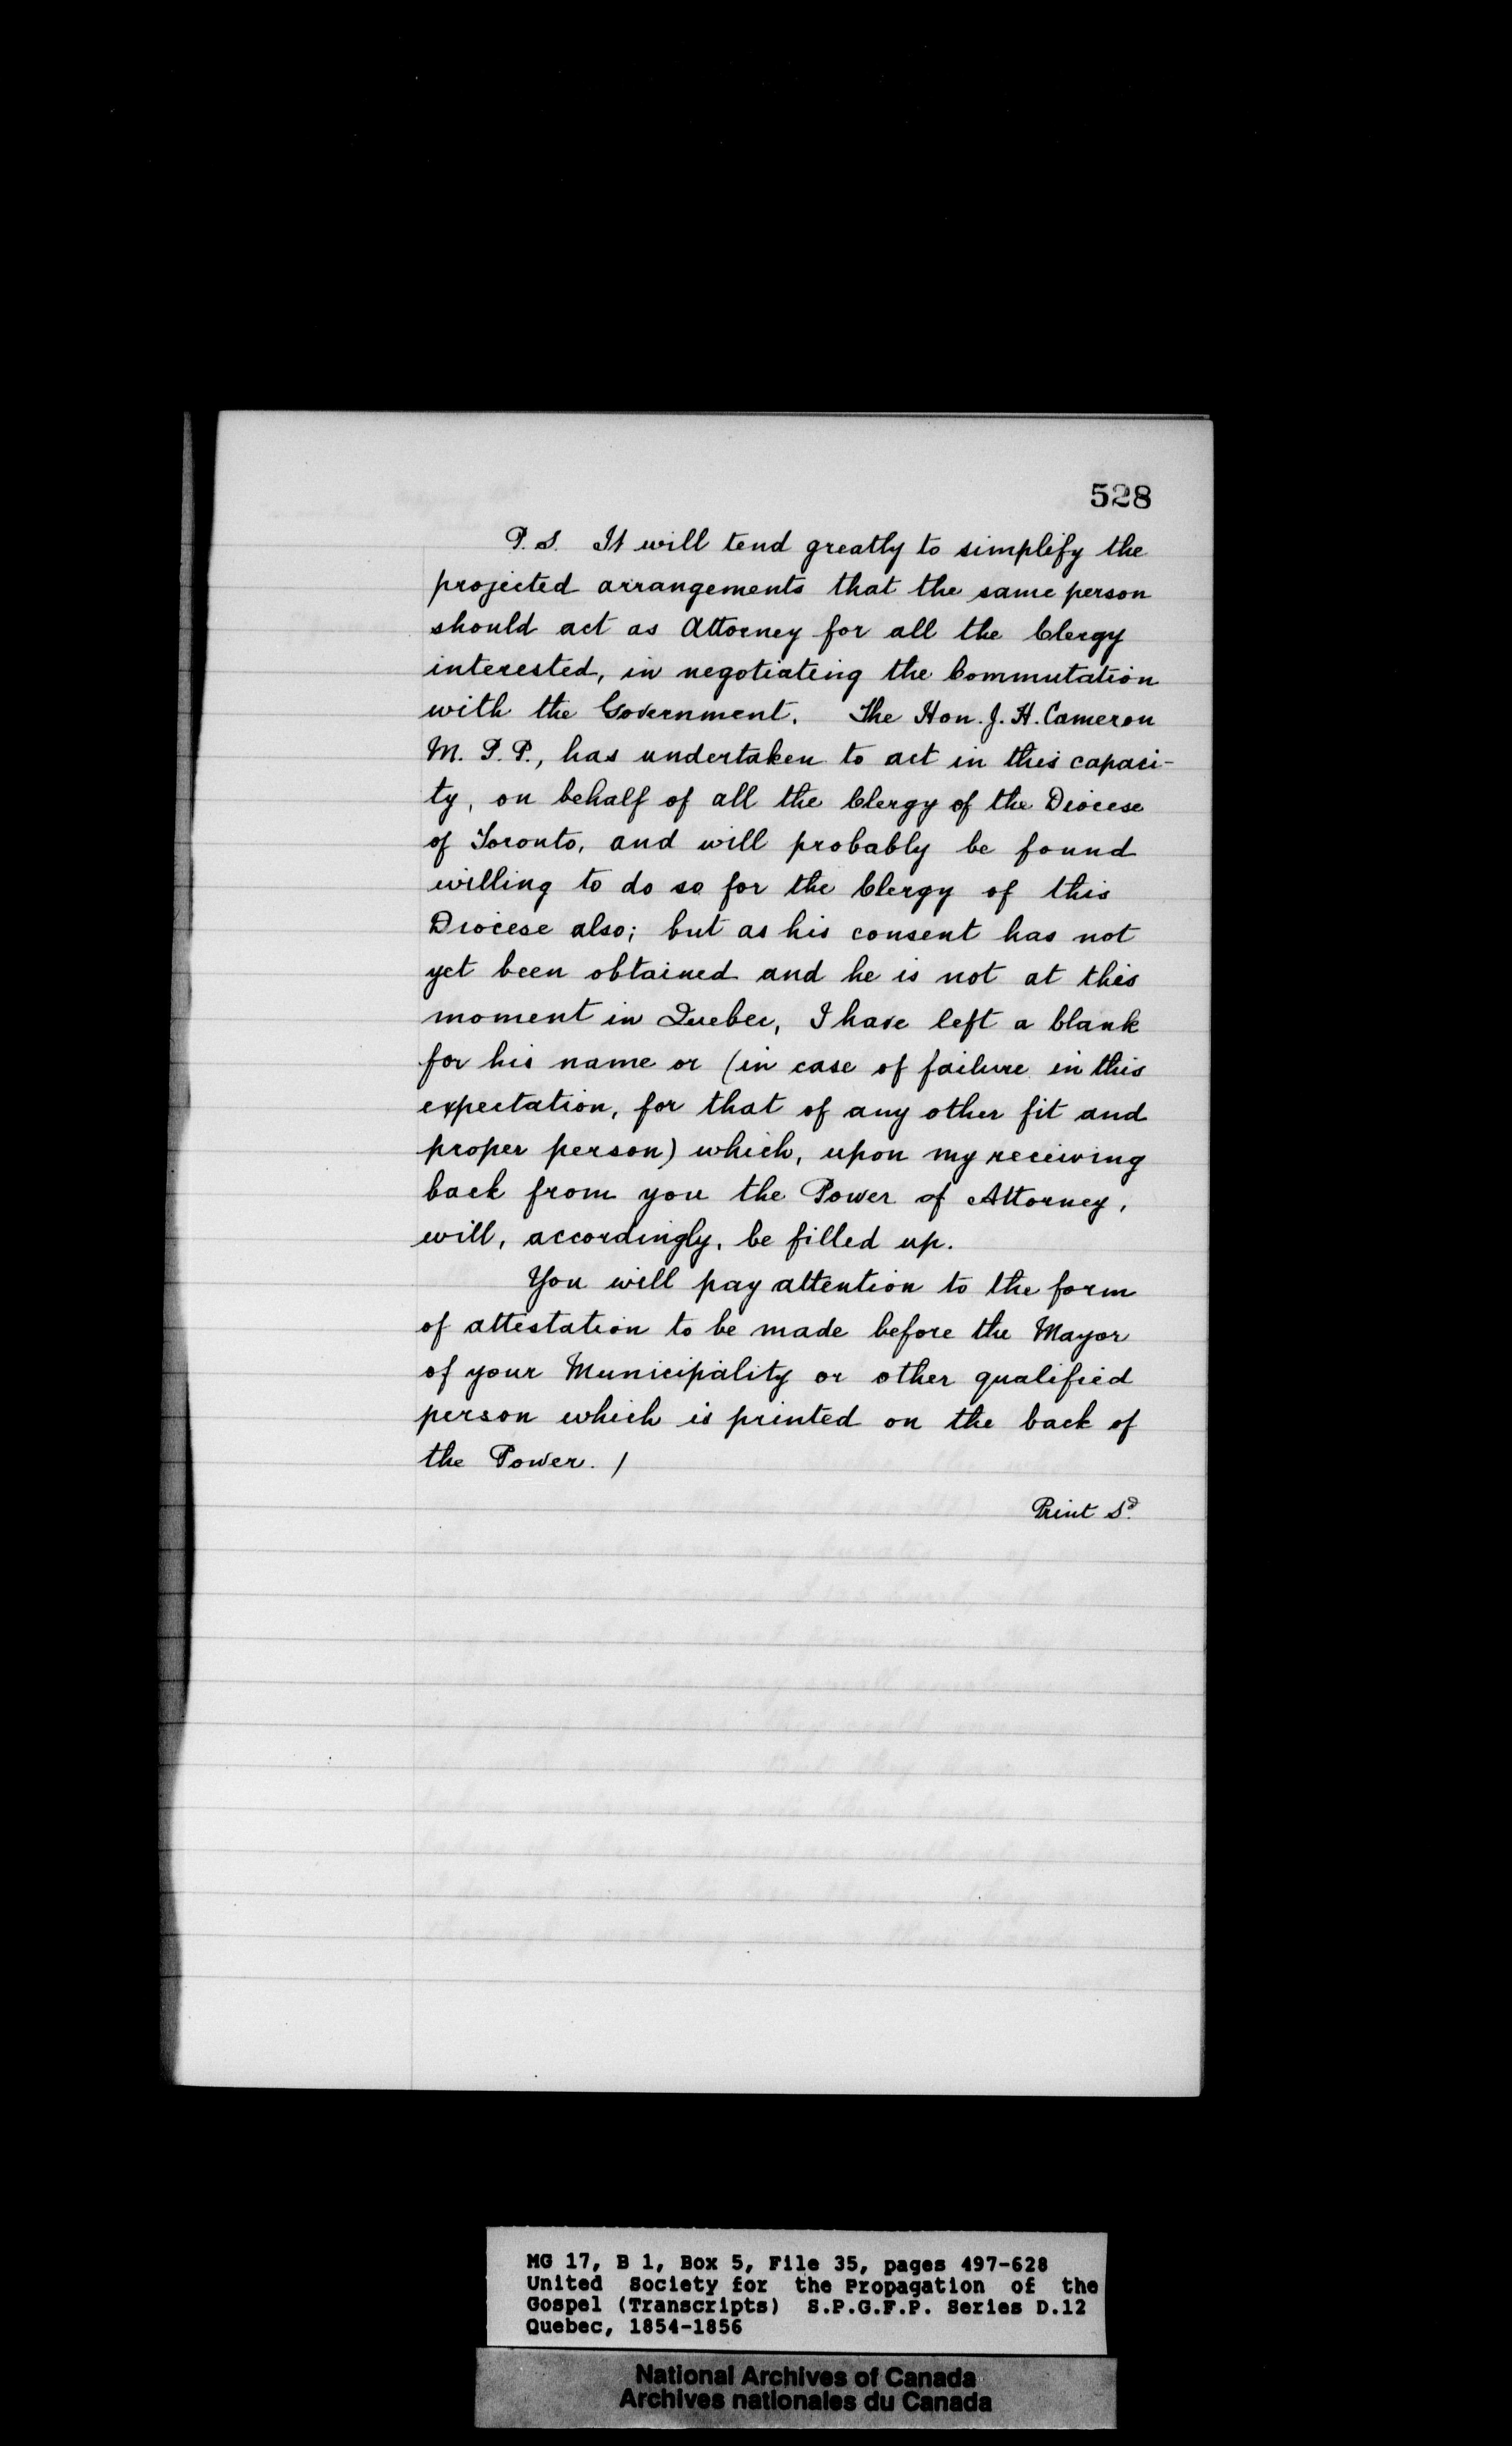 528
P.S. It will tend greatly to simplify the
projected arrangements that the same person
should act as Attorney for all the Clergy
interested, in negotiating the Commutation
with the Government. The Hon. J. H. Cameron
M. P. P., has undertaken to act in this capaci-
ty, on behalf of all the Clergy of the Diocese
of Toronto, and will probably be found
willing to do so for the Clergy of this
Diocese also; but as his consent has not
yet been obtained and he is not at this
moment in Quebec, I have left a blank
for his name or (in case of failure in this
expectation, for that of any other fit and
proper person) which, upon my receiving
back from you the Power of Attorney,
will, accordingly, be filled up.
You will pay attention to the form
of attestation to be made before the Mayor
of your Municipality or other qualified
person which is printed on the back of
the Power. /
Print Sd.
MG 17, B 1, Box 5, File 35, pages 497-628
United Society for the Propagation of the
Gospel (Transcripts) S.P.G.F.P. Series D.12
Quebec, 1854-1856
National Archives of Canada
Archives nationales du Canada